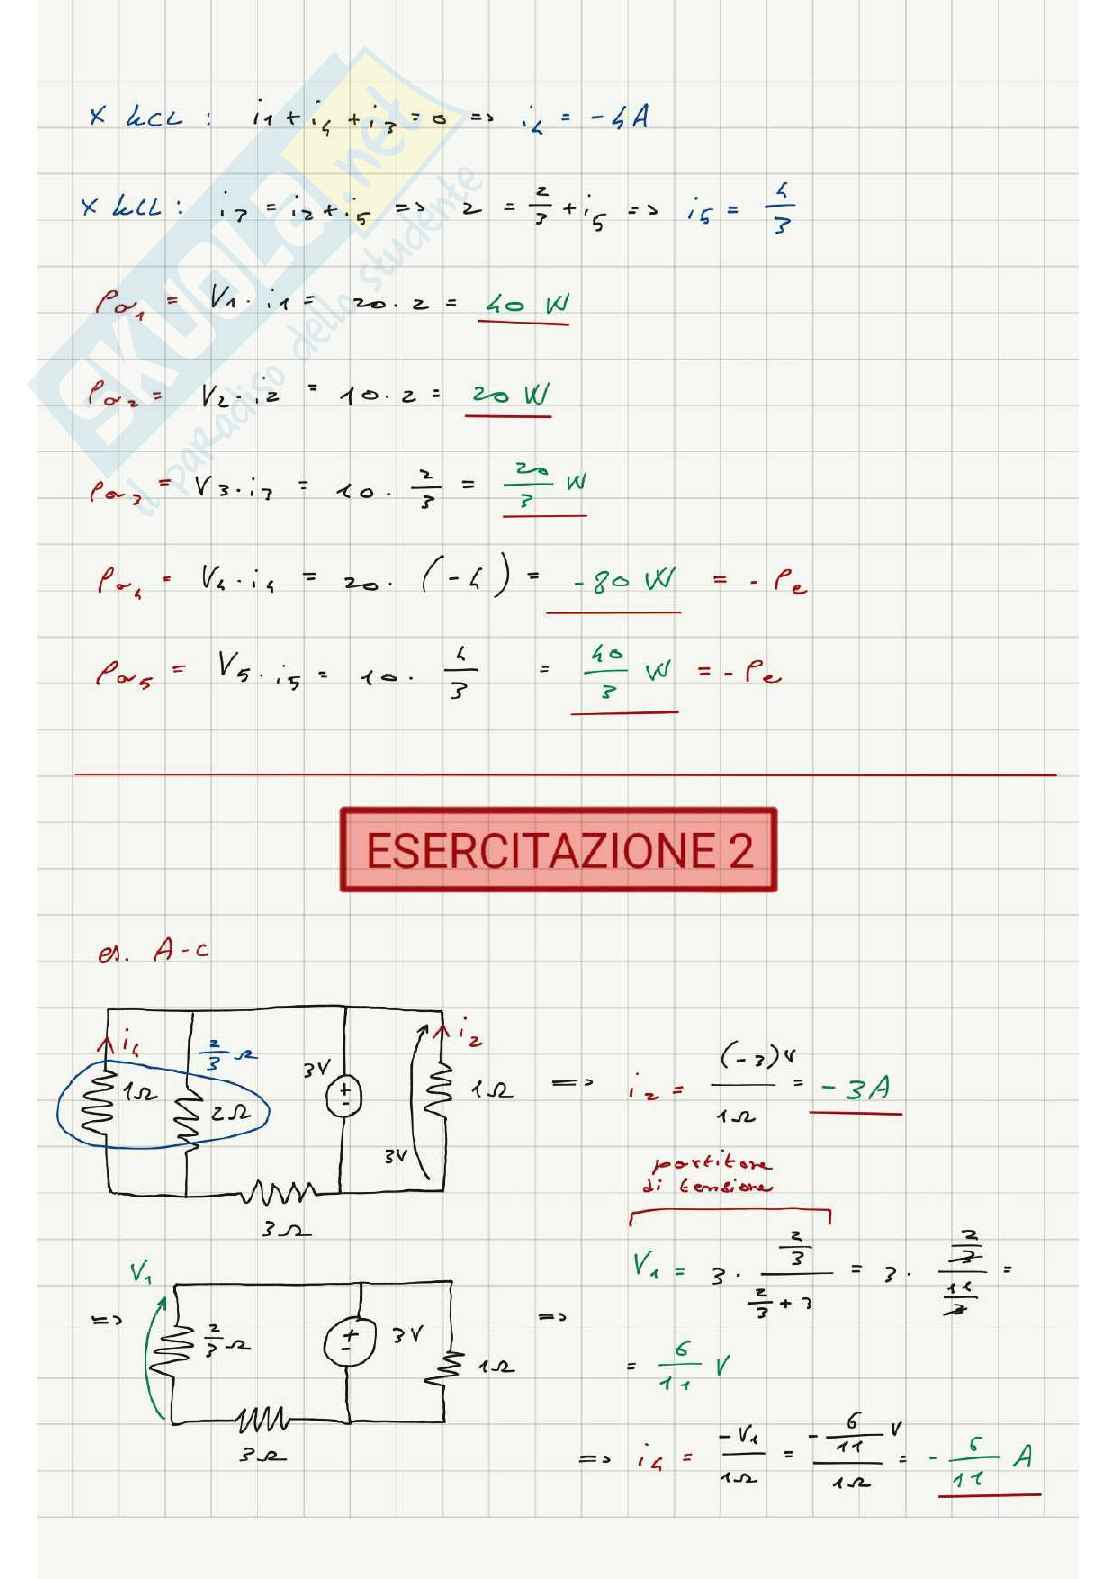 x kCL : i1 + i4 + i3 = 0 => i4 = -4A
x kCL : i3 = i2 + i5 => 2 = 2/3 + i5 => i5 = 4/3
Pa1 = V1 · i1 = 20 · 2 = 40 W
Pa2 = V2 · i2 = 10 · 2 = 20 W
Pa3 = V3 · i3 = 10 · 2/3 = 20/3 W
Pa4 = V4 · i4 = 20 · (-4) = -80 W = - Pe
Pa5 = V5 · i5 = 10 · 4/3 = 40/3 W = - Pe
SKUOLA.net
il paradiso dello studente
ESERCITAZIONE 2
es. A-c
i4
2/3 Ω
1Ω
2Ω
3V
i2
1Ω
3V
3Ω
=> i2 = (-3)V / 1Ω = -3A
partitore
di tensione
V1 = 3 · (2/3) / (2/3 + 3) = 3 · (2/3) / (11/3) =
= 6/11 V
=>
V1
2/3 Ω
3V
1Ω
3Ω
=>
=> i4 = -V1 / 1Ω = (-6/11 V) / 1Ω = - 6/11 A